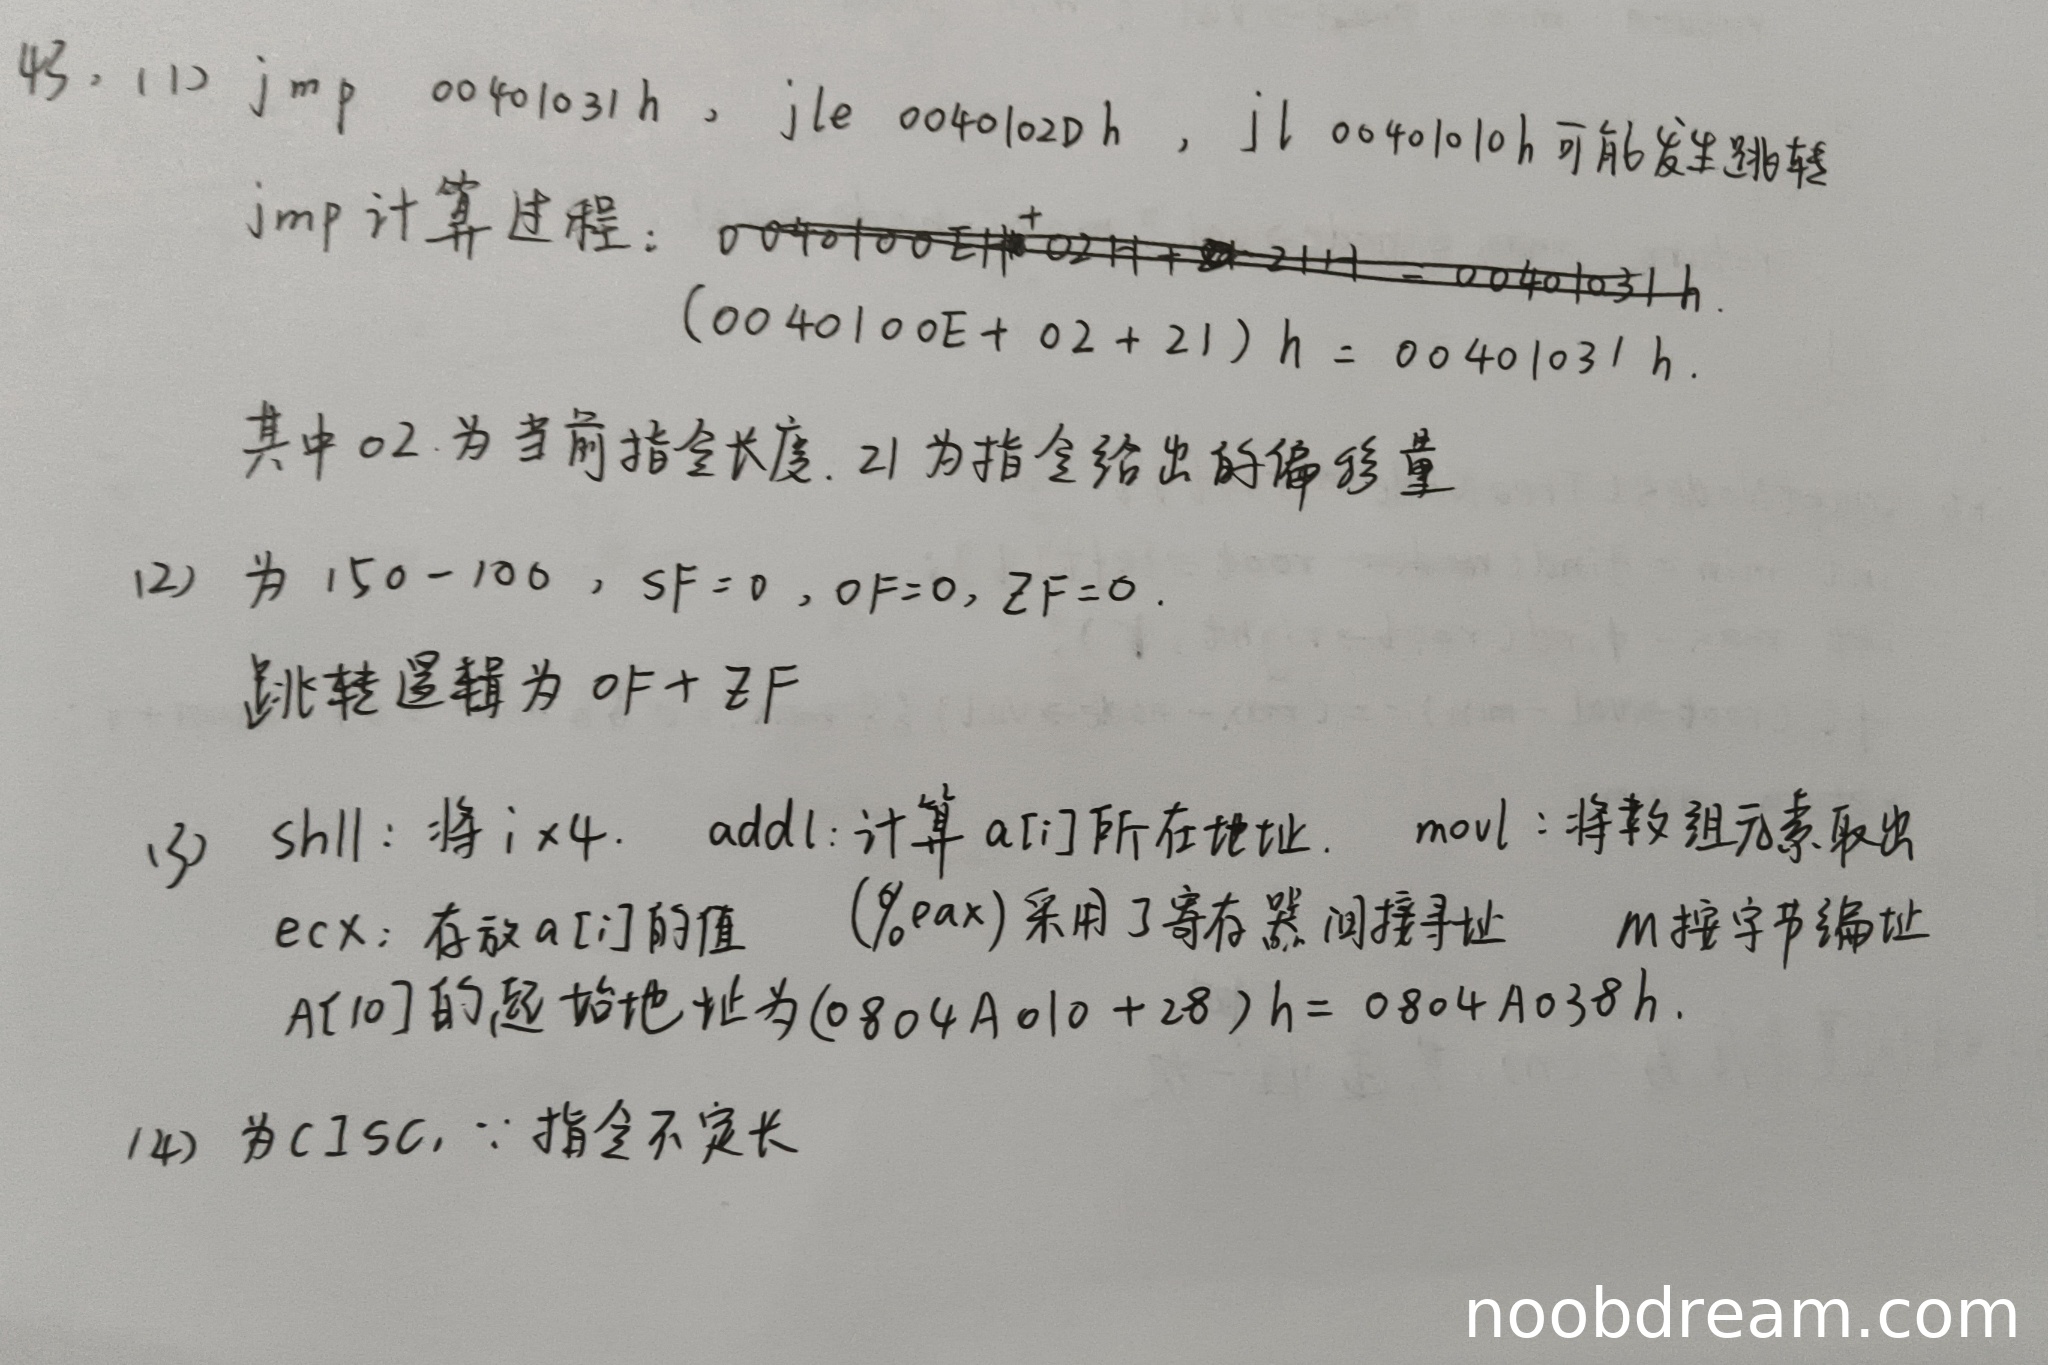 43. (1) jmp 00401031h, jle 0040102Dh, jl 00401010h可能发生跳转
jmp计算过程:
(0040100E + 02 + 21)h = 00401031h.
其中02为当前指令长度.21为指令给出的偏移量
(2) 为150-100, SF=0, OF=0, ZF=0.
跳转逻辑为OF+ZF
(3) shll:将i×4. addl:计算a[i]所在地址. movl:将数组元素取出
ecx:存放a[i]的值 (%eax)采用了寄存器间接寻址 M按字节编址
A[10]的起始地址为(0804A010+28)h=0804A038h.
(4) 为CISC, ∵指令不定长
noobdream.com